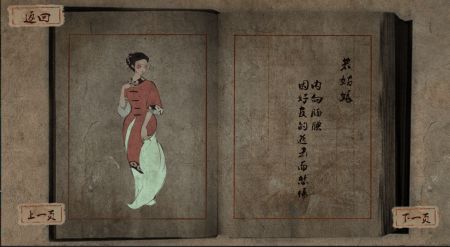 返回
姑娘
内向腼腆
因好友的逝去而悲
上一页
下一页